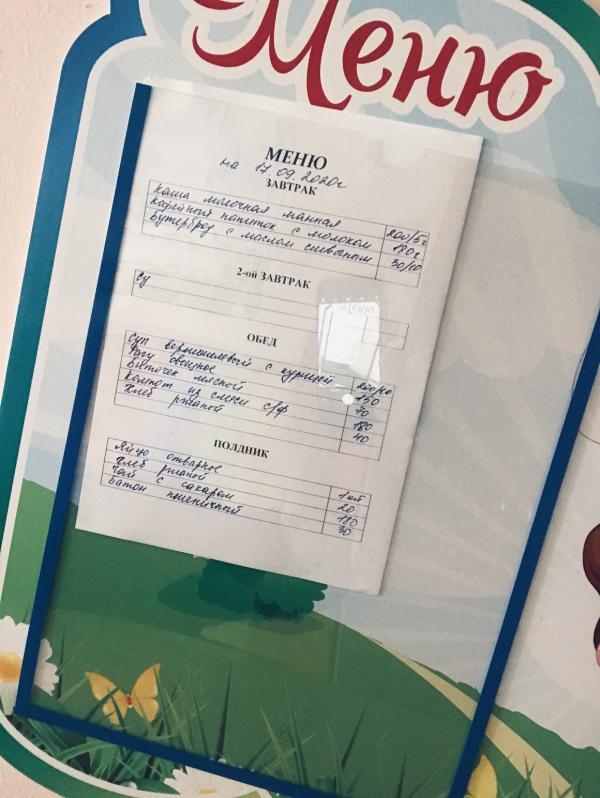 Меню
МЕНЮ
на 17.09.2020г
ЗАВТРАК
Каша молочная манная 200/5
Кофейный напиток с молоком 180г
Бутерброд с маслом сливочным 30/10
2-ой ЗАВТРАК
ОБЕД
Суп вермишелевый с курицей 200/10
Рагу овощное 150
Биточек мясной 70
Компот из смеси с/ф 180
Хлеб ржаной 40
ПОЛДНИК
Яйцо отварное 1 шт
Хлеб ржаной 20
Чай с сахаром 180
Батон пшеничный 30